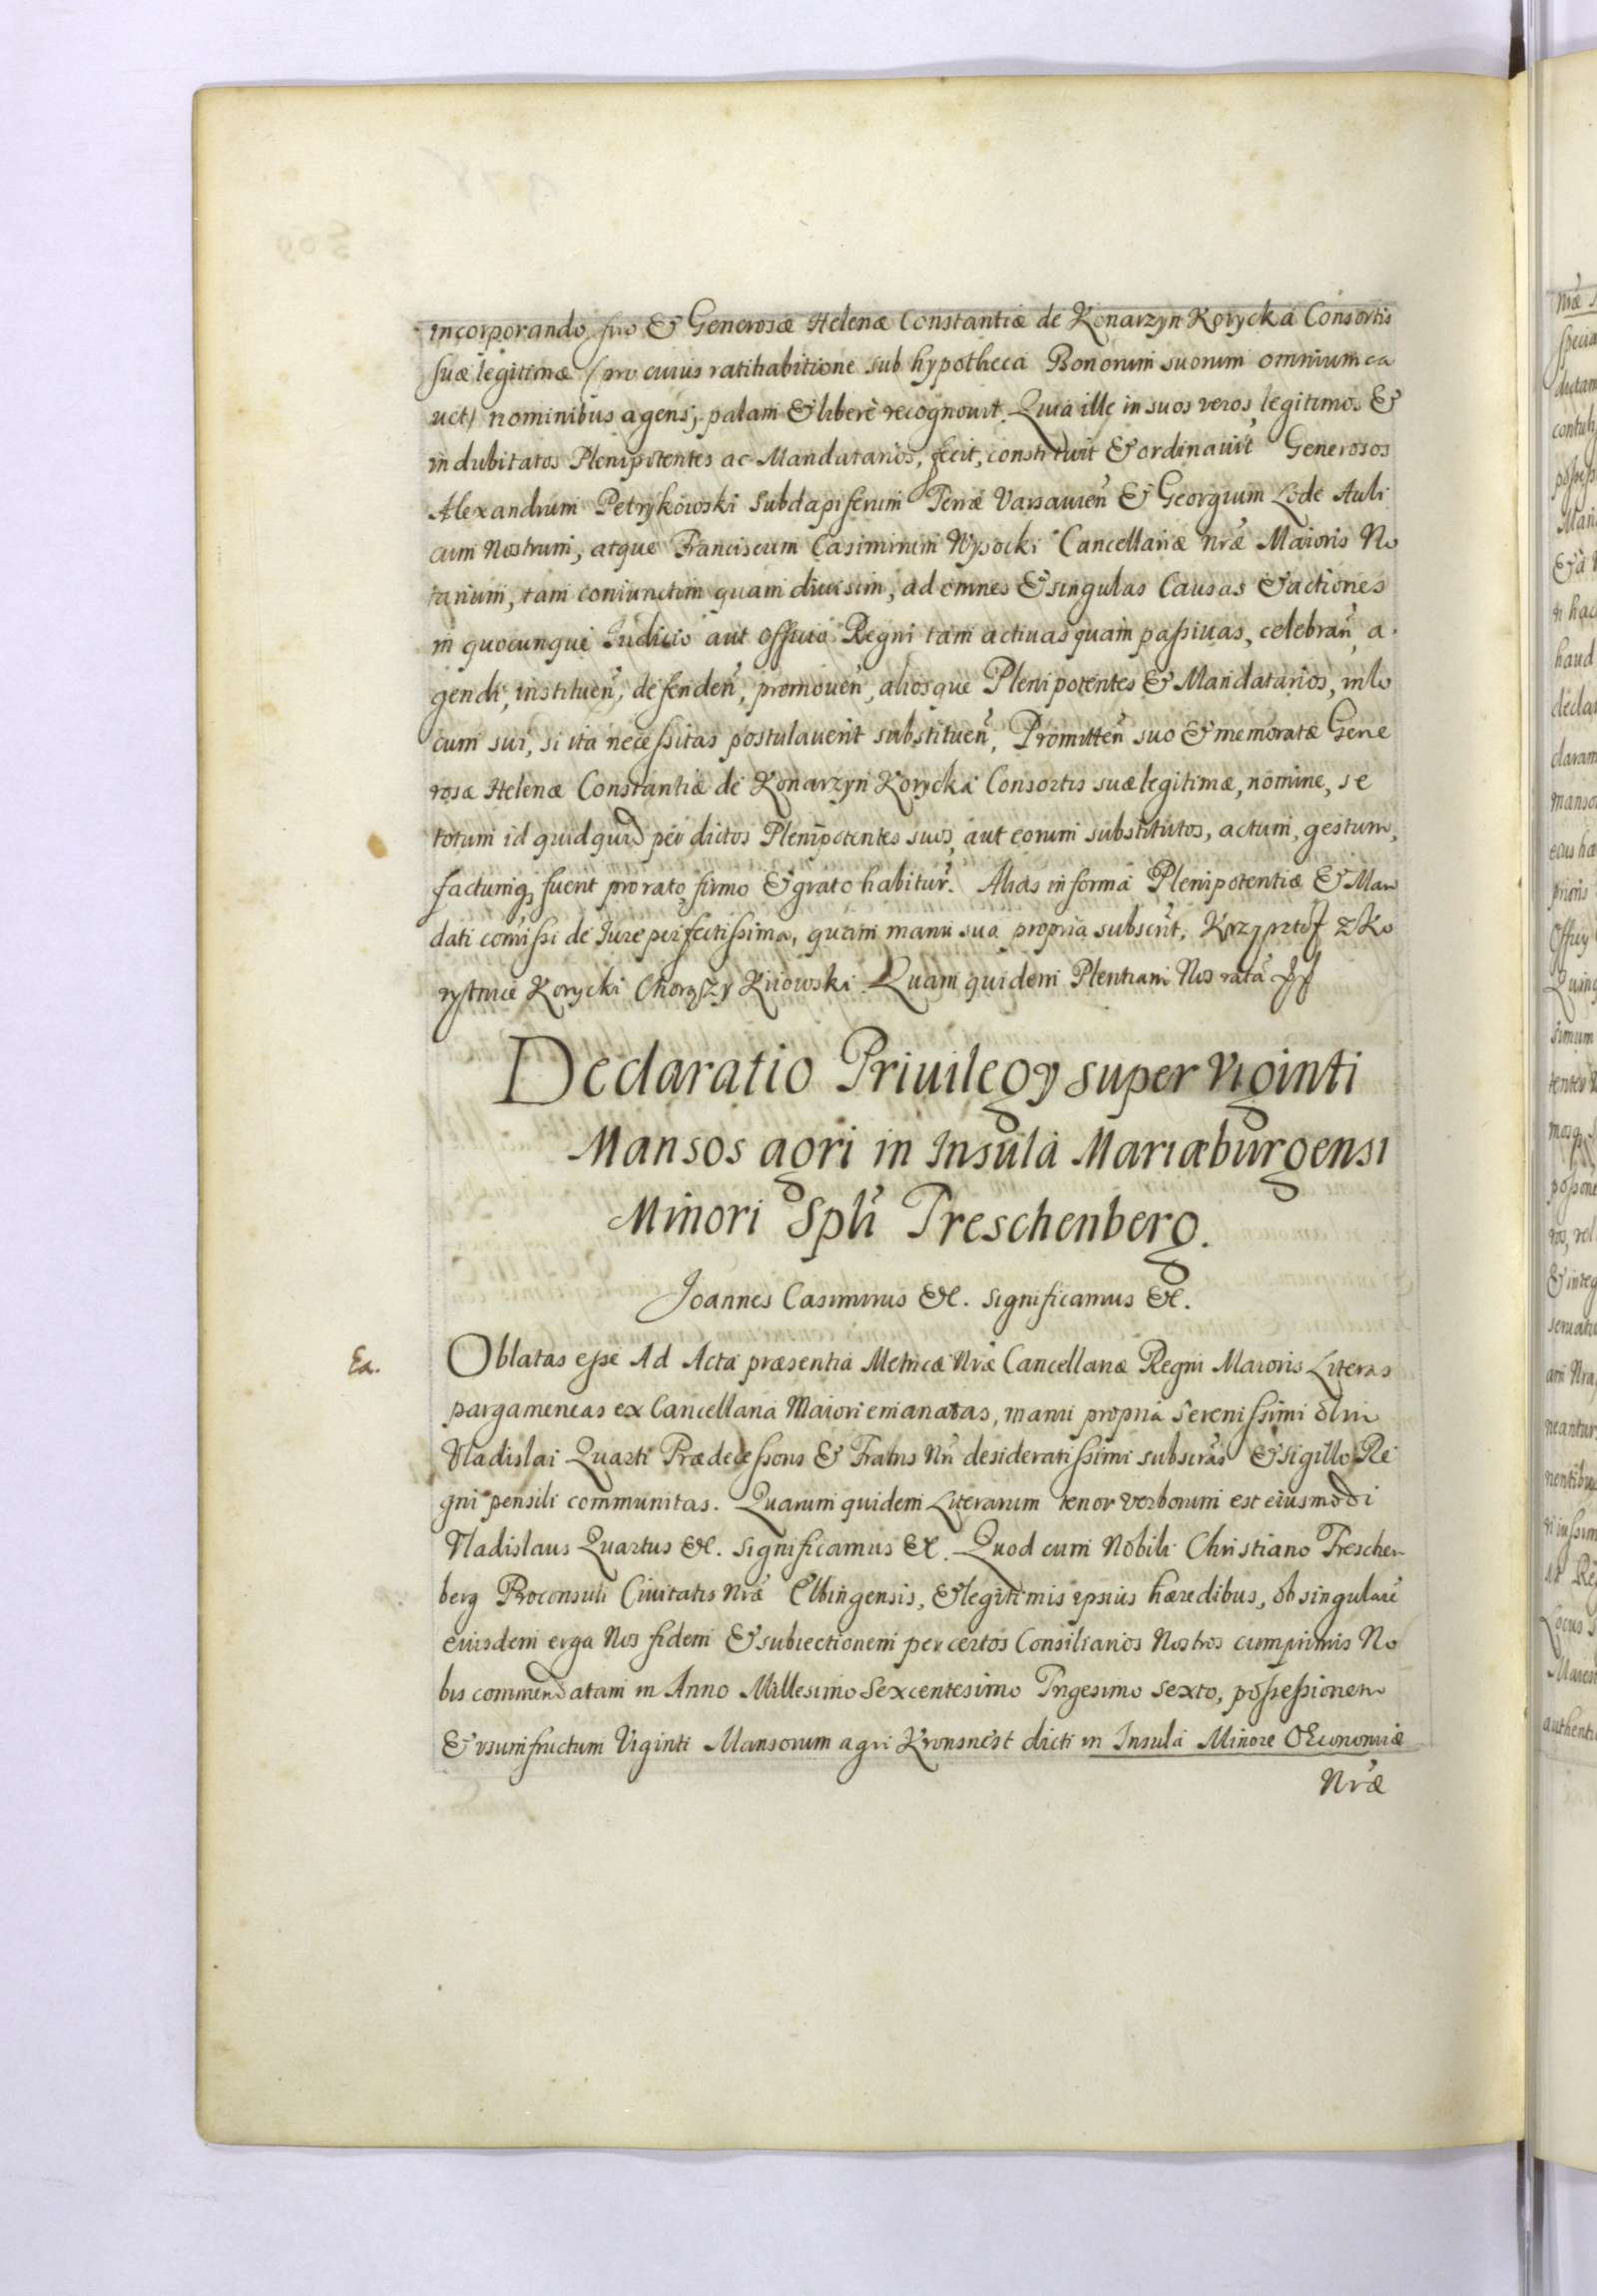 incorporando, suo & Generosæ Helenæ Constantiæ de Konarzyn Korycka Consortis
suæ legitimæ (pro cuius ratihabitione sub hypotheca Bonorum suorum omnium ca
uet) nominibus agens; palam & liberè recognouit. Quia ille in suos veros legitimos &
indubitatos Plenipotentes ac Mandatarios, fecit, constituit & ordinauit Generosos
Alexandrum Petrykowski Subdapiferum Terræ Varsauien̄ & Georgium Lode Auli
cum Nostrum, atque Franciscum Casimirum Wysocki Cancellariæ nræ Maioris No
tarium, tam coniunctim quam diuisim, ad omnes & singulas Causas & actiones
in quocunque Iudicio aut Officio Regni tam actiuas quam passiuas, celebran̄, a
gendi, instituen̄, defenden̄, promouen̄, aliosque Plenipotentes & Mandatarios, in lo
cum sui, si ita necessitas postulauerit substituen̄, Promitten̄ suo & memoratæ Gene
rosæ Helenæ Constantiæ de Konarzyn Korycka Consortis suæ legitimæ, nomine, se
totum id quidquid per dictos Plenipotentes suos, aut eorum substitutos, actum, gestum,
factumq́ fuerit pro rato, firmo & grato habitur̄. Alias in forma Plenipotentiæ & Man
dati com̄issi de Iure perfectissima, quam manu sua propria subscr̄t, Krzysztof z Ko
rystnice Korycki Chorąży Kiiowski. Quam quidem Plentiam Nos rata
Declaratio Priuilegy super viginti
Mansos agri in Insula Mariæburgensi
Minori Splī Treschenberg.
Joannes Casimirus &c. significamus &c.
Ea.
Oblatas esse Ad Acta præsentia Metricæ Nræ Cancellariæ Regni Maioris Literas
pargameneas ex Cancellaria Maiori emanatas, manu propria Serenissimi olim
Vladislai Quarti Prædecessoris & Fratris Nri desideratissimi subscr̄as & sigillo Re
gni pensili communitas. Quarum quidem Literarum tenor verborum est eiusmodi
Vladislaus Quartus &c. significamus &c. Quod cum Nobili Christiano Treschen
berg Proconsuli Ciuitatis Nræ Elbingensis, & legitimis ipsius hæredibus, ob singularē
eiusdem erga Nos fidem & subiectionem per certos Consiliarios Nostros cumprimis No
bis commendatam in Anno Millesimo Sexcentesimo Trigesimo Sexto, possessionem
& vsumfructum Viginti Mansorum agri Kronsnest dicti in Insula Minore Œconomiæ
Nræ